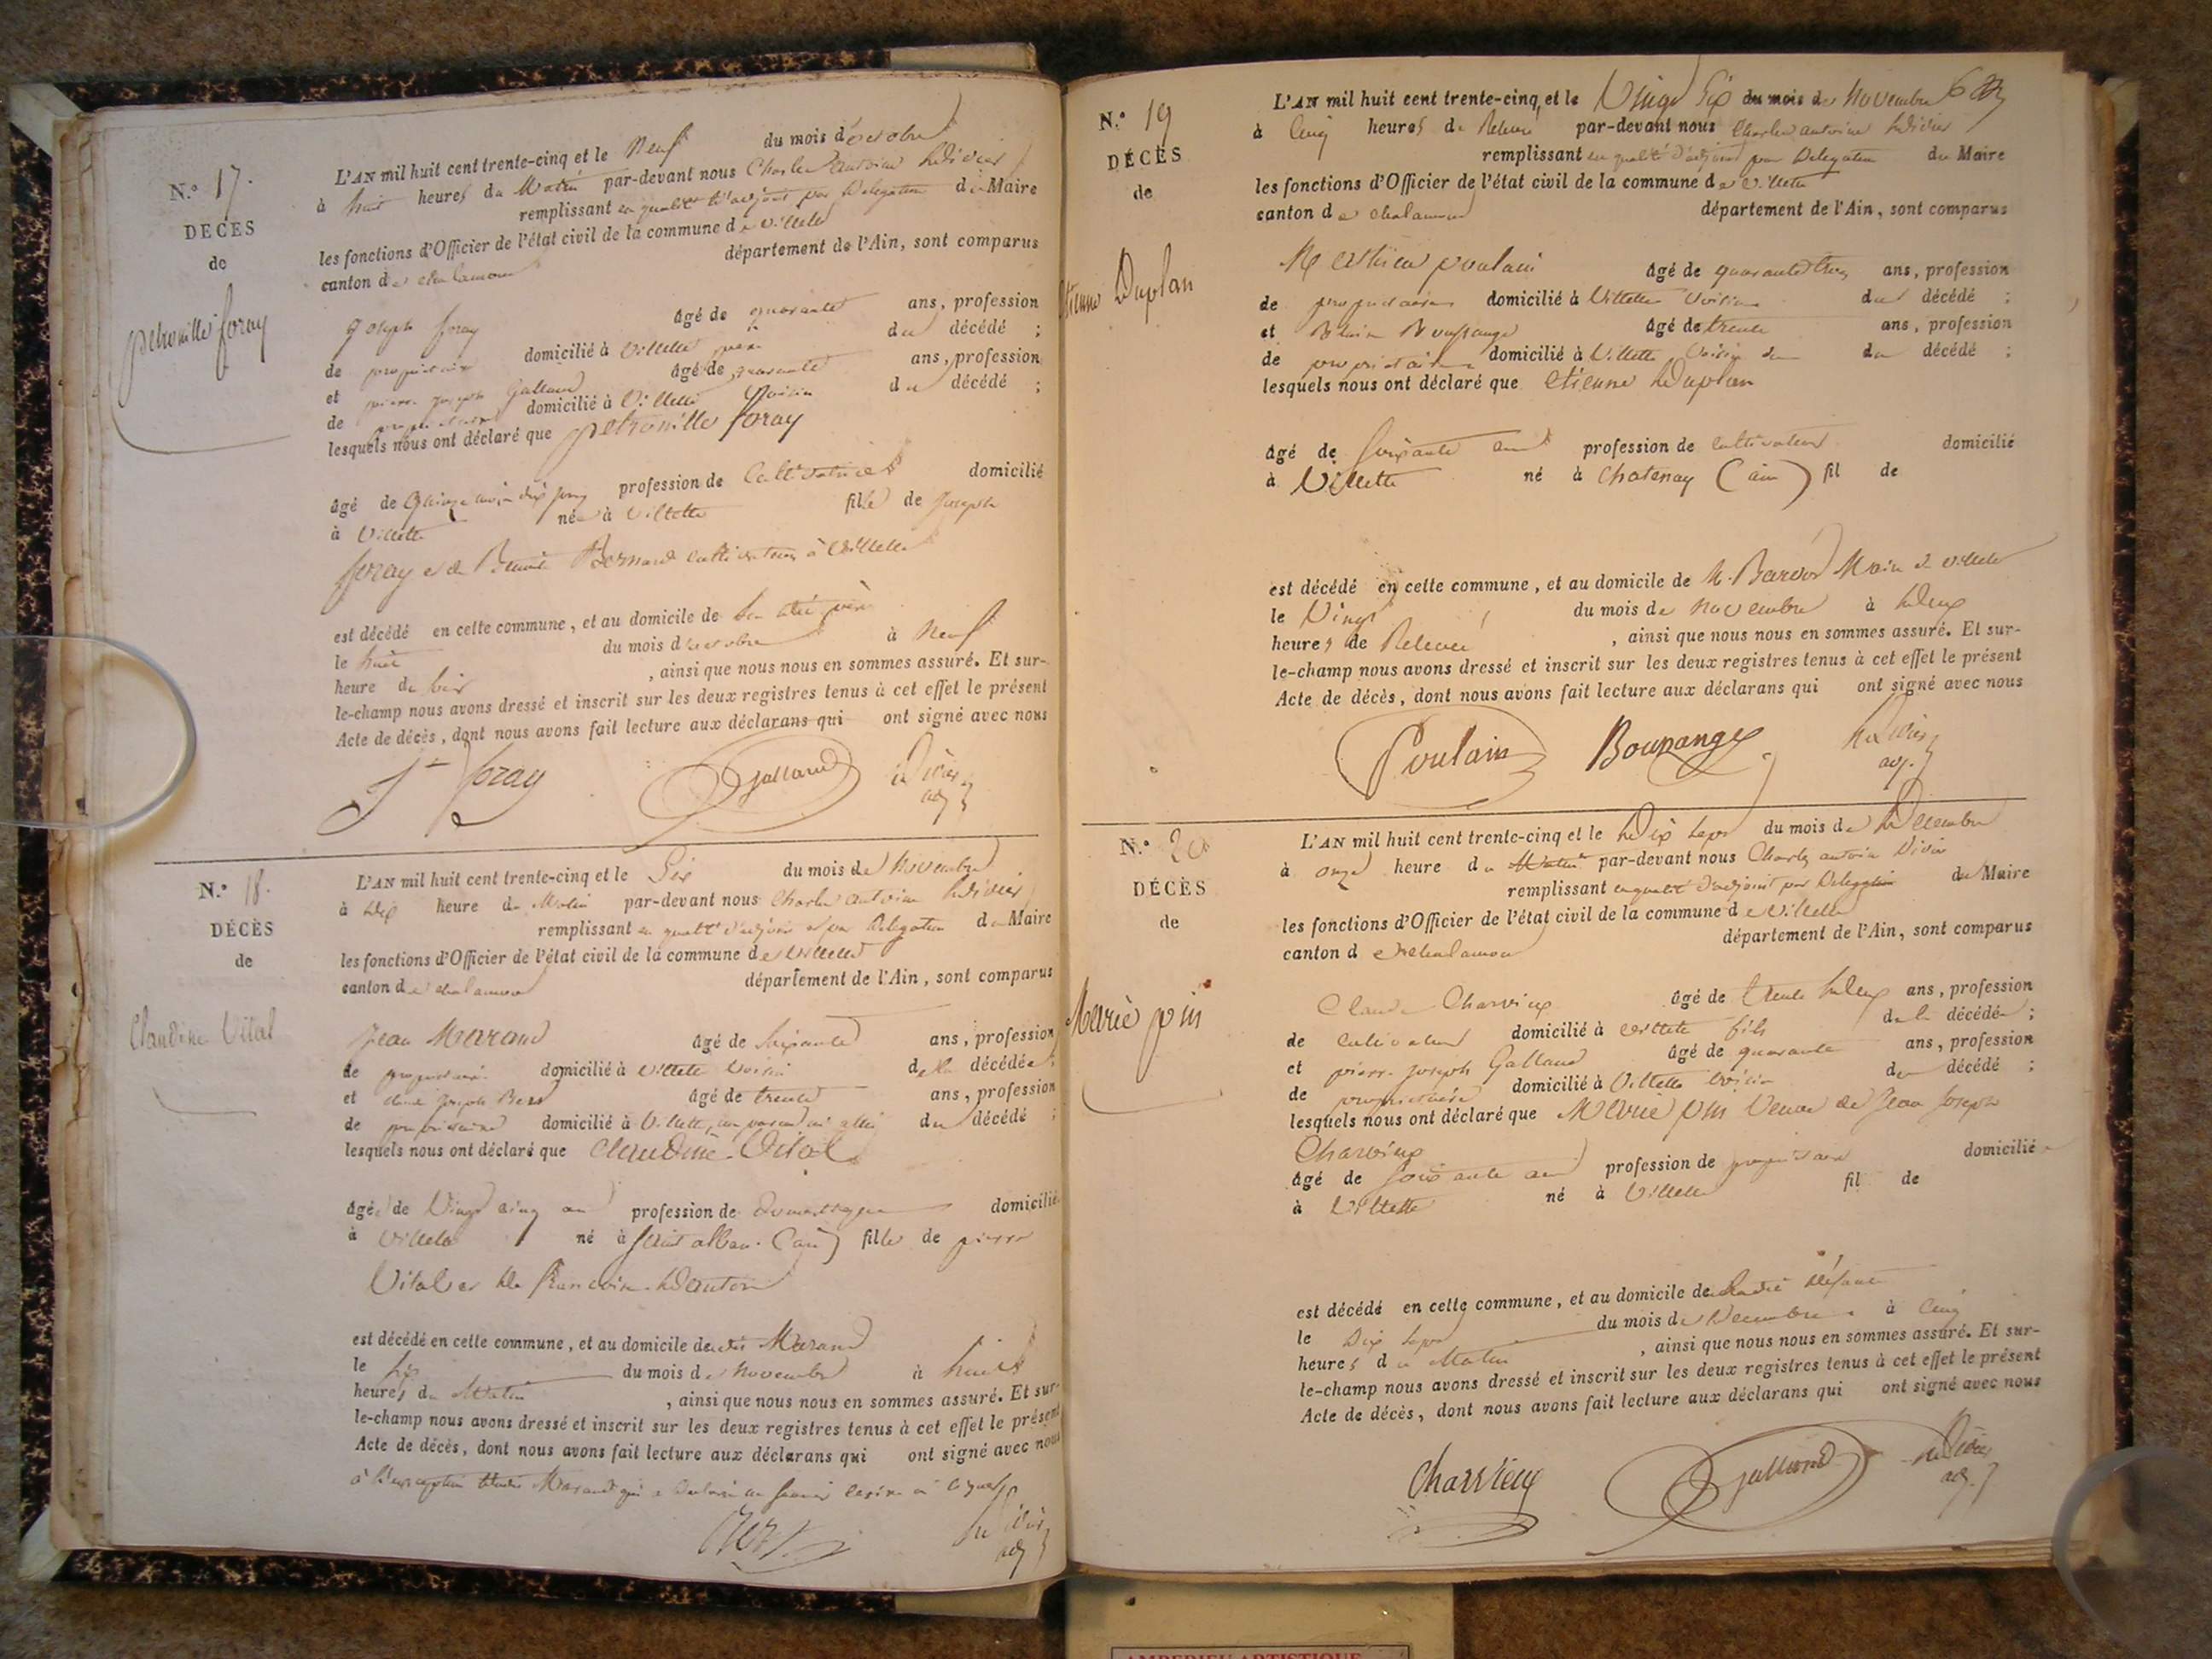 N.º 17.
DÉCÈS
de
petronille foray
L'AN mil huit cent trente-cinq et le Neuf du mois d'octobre
à huit heures du Matin par-devant nous Charles Antoine Didier
remplissant en qualité d'adjoint par Delegation du Maire
les fonctions d'Officier de l'état civil de la commune de Villette
canton de chalamont département de l'Ain, sont comparus
joseph foray âgé de quarante ans, profession
de propriétaire domicilié à Villette père du décédé ;
et pierre joseph Galland âgé de quarante ans, profession
de propriétaire domicilié à Villette Voisin du décédé ;
lesquels nous ont déclaré que petronille foray
âgé de Quinze profession de Cultivatrice domicilié
à Villette née à Villette fille de joseph
foray et de Bernard cultivateurs à Villette
est décédé en cette commune, et au domicile de son père
le huit du mois d'octobre à Neuf
heure du soir , ainsi que nous nous en sommes assuré. Et sur-
le-champ nous avons dressé et inscrit sur les deux registres tenus à cet effet le présent
Acte de décès, dont nous avons fait lecture aux déclarans qui ont signé avec nous
Jh foray Galland Didier
adj
N.º 18.
DÉCÈS
de
Claudine Vital
L'AN mil huit cent trente-cinq et le Six du mois de Novembre
à dix heure du Matin par-devant nous Charles Antoine Didier
remplissant en qualité d'adjoint et par Delegation du Maire
les fonctions d'Officier de l'état civil de la commune de Villette
canton de chalamont département de l'Ain, sont comparus
Jean Marand âgé de soixante ans, profession
de propriétaire domicilié à Villette Voisin de la décédée ;
et joseph âgé de trente ans, profession
de propriétaire domicilié à Villette, non parent ni allié du décédé ;
lesquels nous ont déclaré que Claudine Vital
âgée de Vingt cinq ans profession de Domestique domiciliée
à Villette né à Saint alban (ain) fille de pierre
Vital et de francoise
est décédé en cette commune, et au domicile de dit Marand
le six du mois de Novembre à huit
heures du Matin , ainsi que nous nous en sommes assuré. Et sur-
le-champ nous avons dressé et inscrit sur les deux registres tenus à cet effet le présent
Acte de décès, dont nous avons fait lecture aux déclarans qui ont signé avec nous
à l'exception dudit Marand qui a déclaré ne savoir
Didier
adj
N.º 19
DÉCÈS
de
Etienne Duplan
L'AN mil huit cent trente-cinq, et le Vingt Six du mois de Novembre
à Cinq heures de Relevée par-devant nous Charles antoine Didier
remplissant en qualité d'adjoint par Delegation du Maire
les fonctions d'Officier de l'état civil de la commune de Villette
canton de chalamont département de l'Ain, sont comparus
Mathieu poulain âgé de quarante trois ans, profession
de propriétaire domicilié à Villette Voisin du décédé ;
et âgé de trente ans, profession
de propriétaire domicilié à Villette Voisin du décédé ;
lesquels nous ont déclaré que etienne Duplan
âgé de soixante ans profession de cultivateur domicilié
à Villette né à Chatenay (ain) fil de
est décédé en cette commune, et au domicile de M. Maire de Villette
le Vingt du mois de Novembre à deux
heures de Relevée , ainsi que nous nous en sommes assuré. Et sur-
le-champ nous avons dressé et inscrit sur les deux registres tenus à cet effet le présent
Acte de décès, dont nous avons fait lecture aux déclarans qui ont signé avec nous
Poulain Didier
adj.
N.º 20
DÉCÈS
de
Marie pin
L'AN mil huit cent trente-cinq et le Dix sept du mois de Décembre
à onze heure du Matin par-devant nous Charles antoine Didier
remplissant en qualité d'adjoint par Delegation du Maire
les fonctions d'Officier de l'état civil de la commune de Villette
canton de chalamont département de l'Ain, sont comparus
Claude Charvieux âgé de trente deux ans, profession
de cultivateur domicilié à Villette fils de la décédée ;
et pierre joseph Galland âgé de quarante ans, profession
de propriétaire domicilié à Villette Voisin du décédé ;
lesquels nous ont déclaré que Marie pin Veuve de Jean Joseph
Charvieux
âgé de soixante ans profession de propriétaire domicilié
à Villette né à Villette fil de
est décédé en cette commune, et au domicile de
le Dix sept du mois de Décembre à Cinq
heures du Matin , ainsi que nous nous en sommes assuré. Et sur-
le-champ nous avons dressé et inscrit sur les deux registres tenus à cet effet le présent
Acte de décès, dont nous avons fait lecture aux déclarans qui ont signé avec nous
Galland Didier
adj.
AMBERIEU ARTISTIQUE